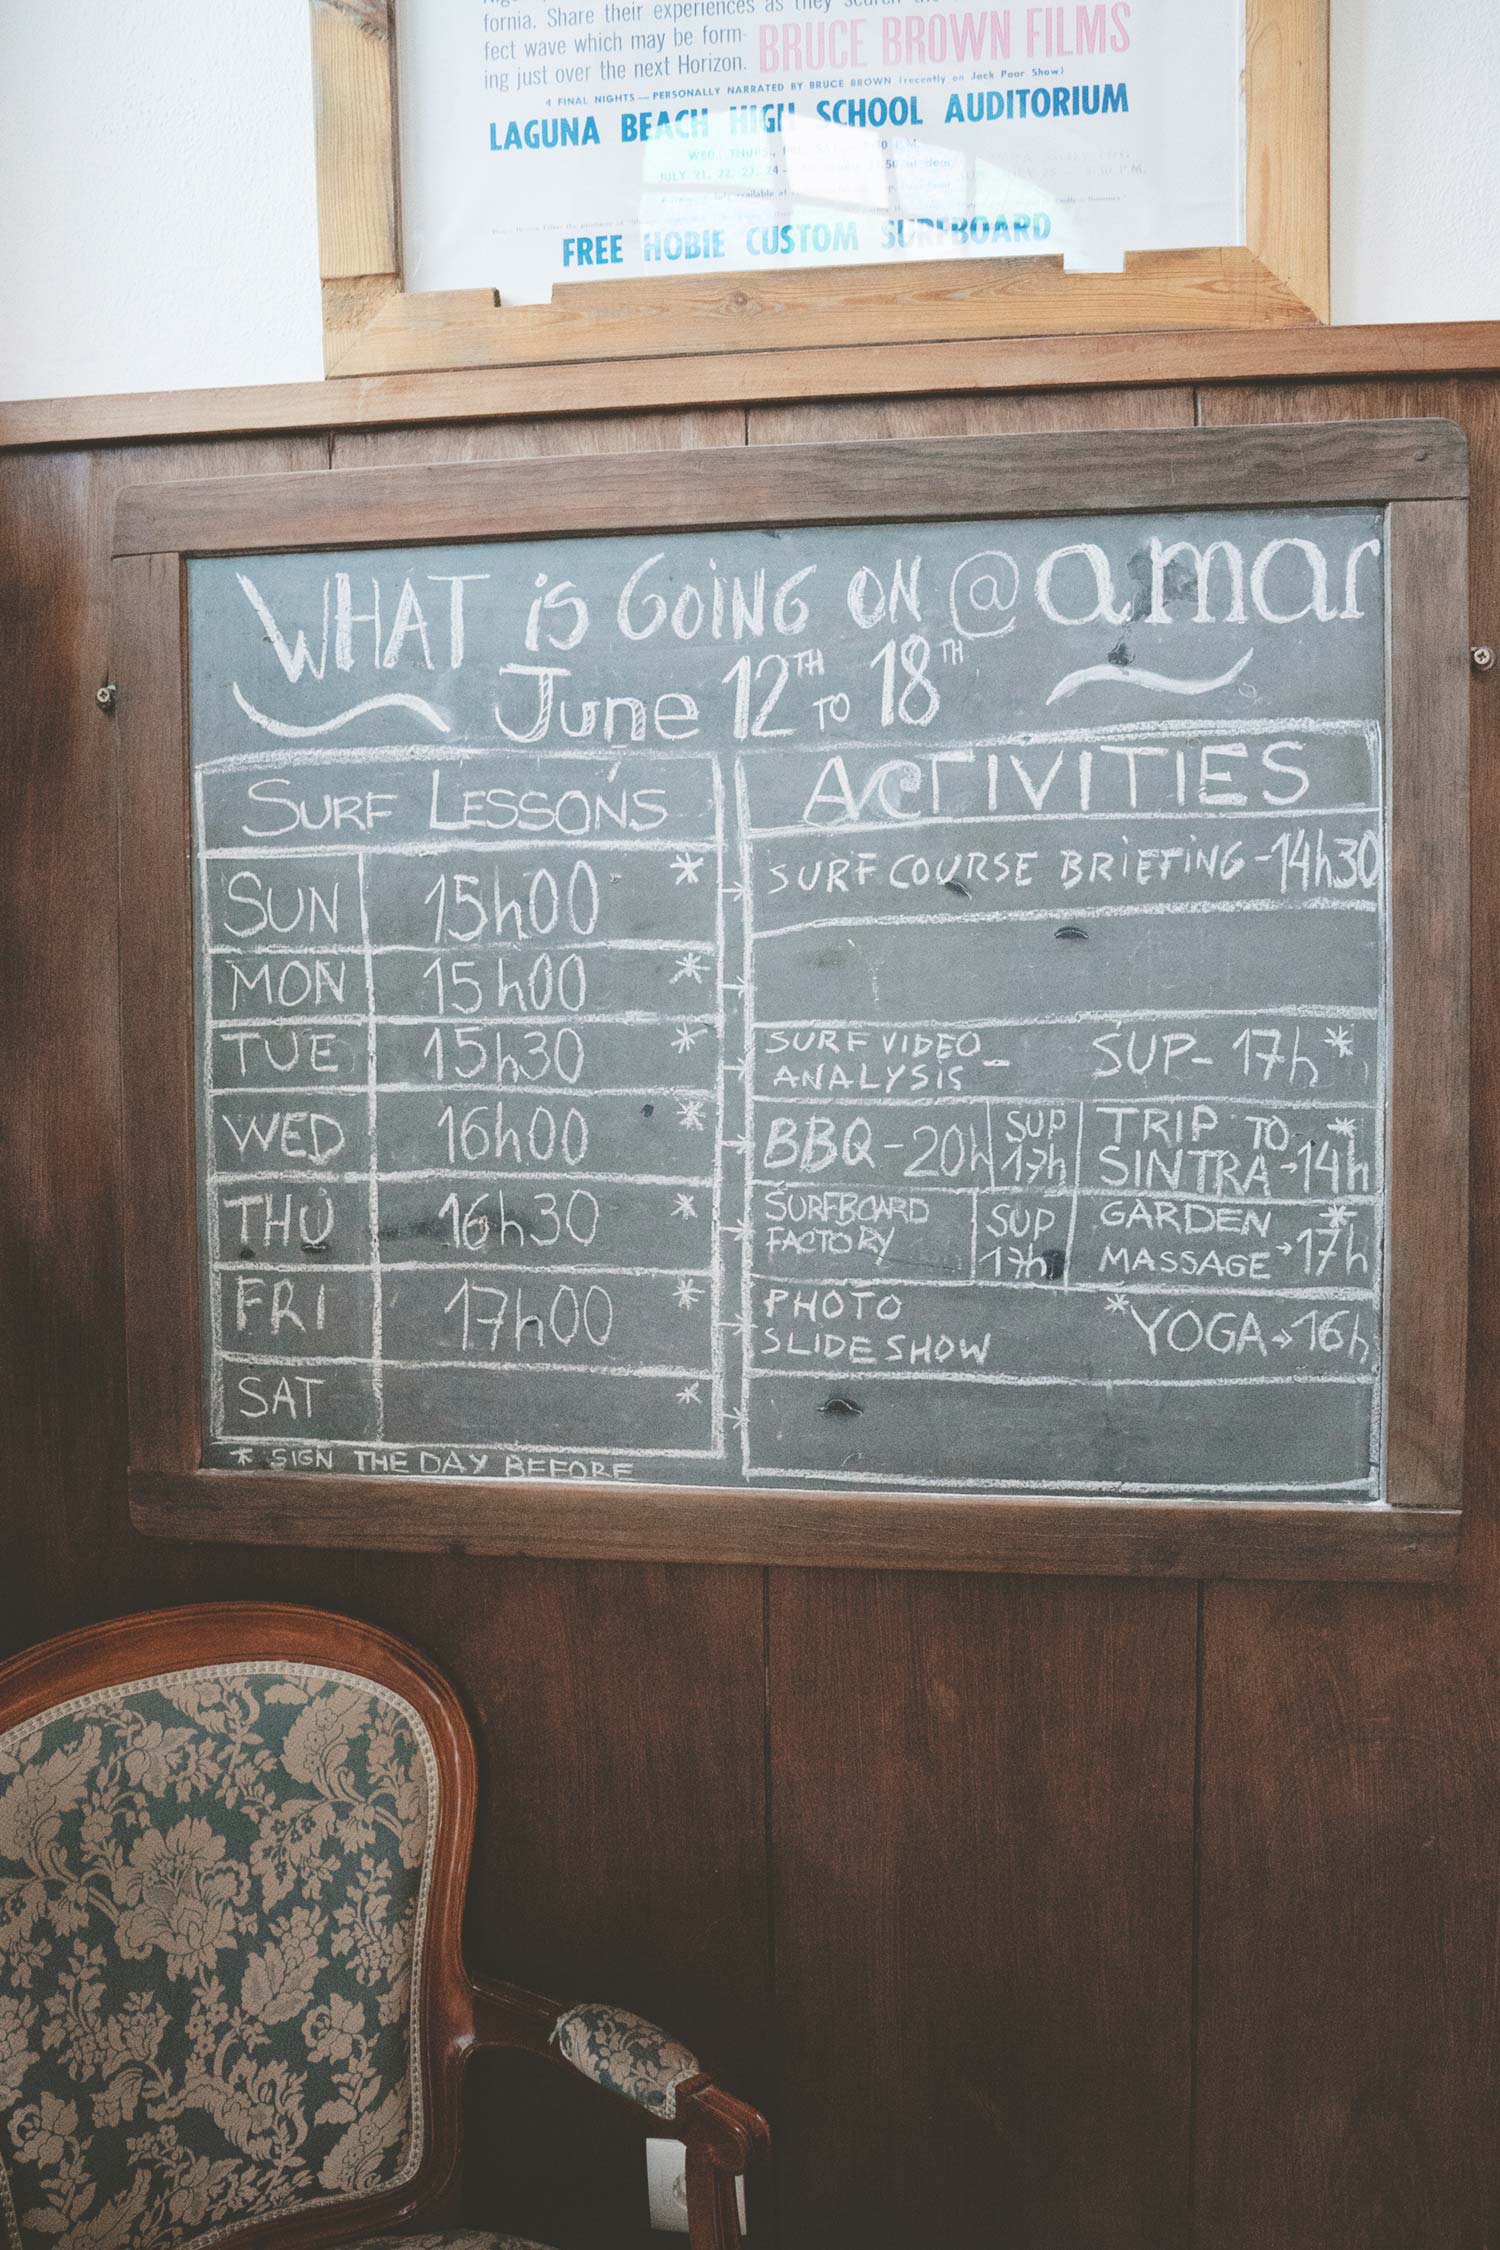 fornia. Share their experiences as they search the
fect wave which may be form-
ing just over the next Horizon.
BRUCE BROWN FILMS
4 FINAL NIGHTS — PERSONALLY NARRATED BY BRUCE BROWN (recently on Jack Paar Show)
LAGUNA BEACH HIGH SCHOOL AUDITORIUM
WED., THURS.,
JULY 21, 22, 23, 24
FREE HOBIE CUSTOM SURFBOARD
WHAT is GOiNG ON @ amar
June 12TH TO 18TH
SURF LESSONS
SUN 15h00 *
MON 15h00 *
TUE 15h30 *
WED 16h00 *
THU 16h30 *
FRI 17h00 *
SAT *
* SIGN THE DAY BEFORE
ACTIVITIES
SURF COURSE BRIEFING - 14h30
SURF VIDEO ANALYSIS - SUP - 17h *
BBQ - 20h SUP 17h TRIP TO SINTRA → 14h *
SURFBOARD FACTORY SUP 17h GARDEN MASSAGE → 17h *
PHOTO SLIDE SHOW * YOGA → 16h